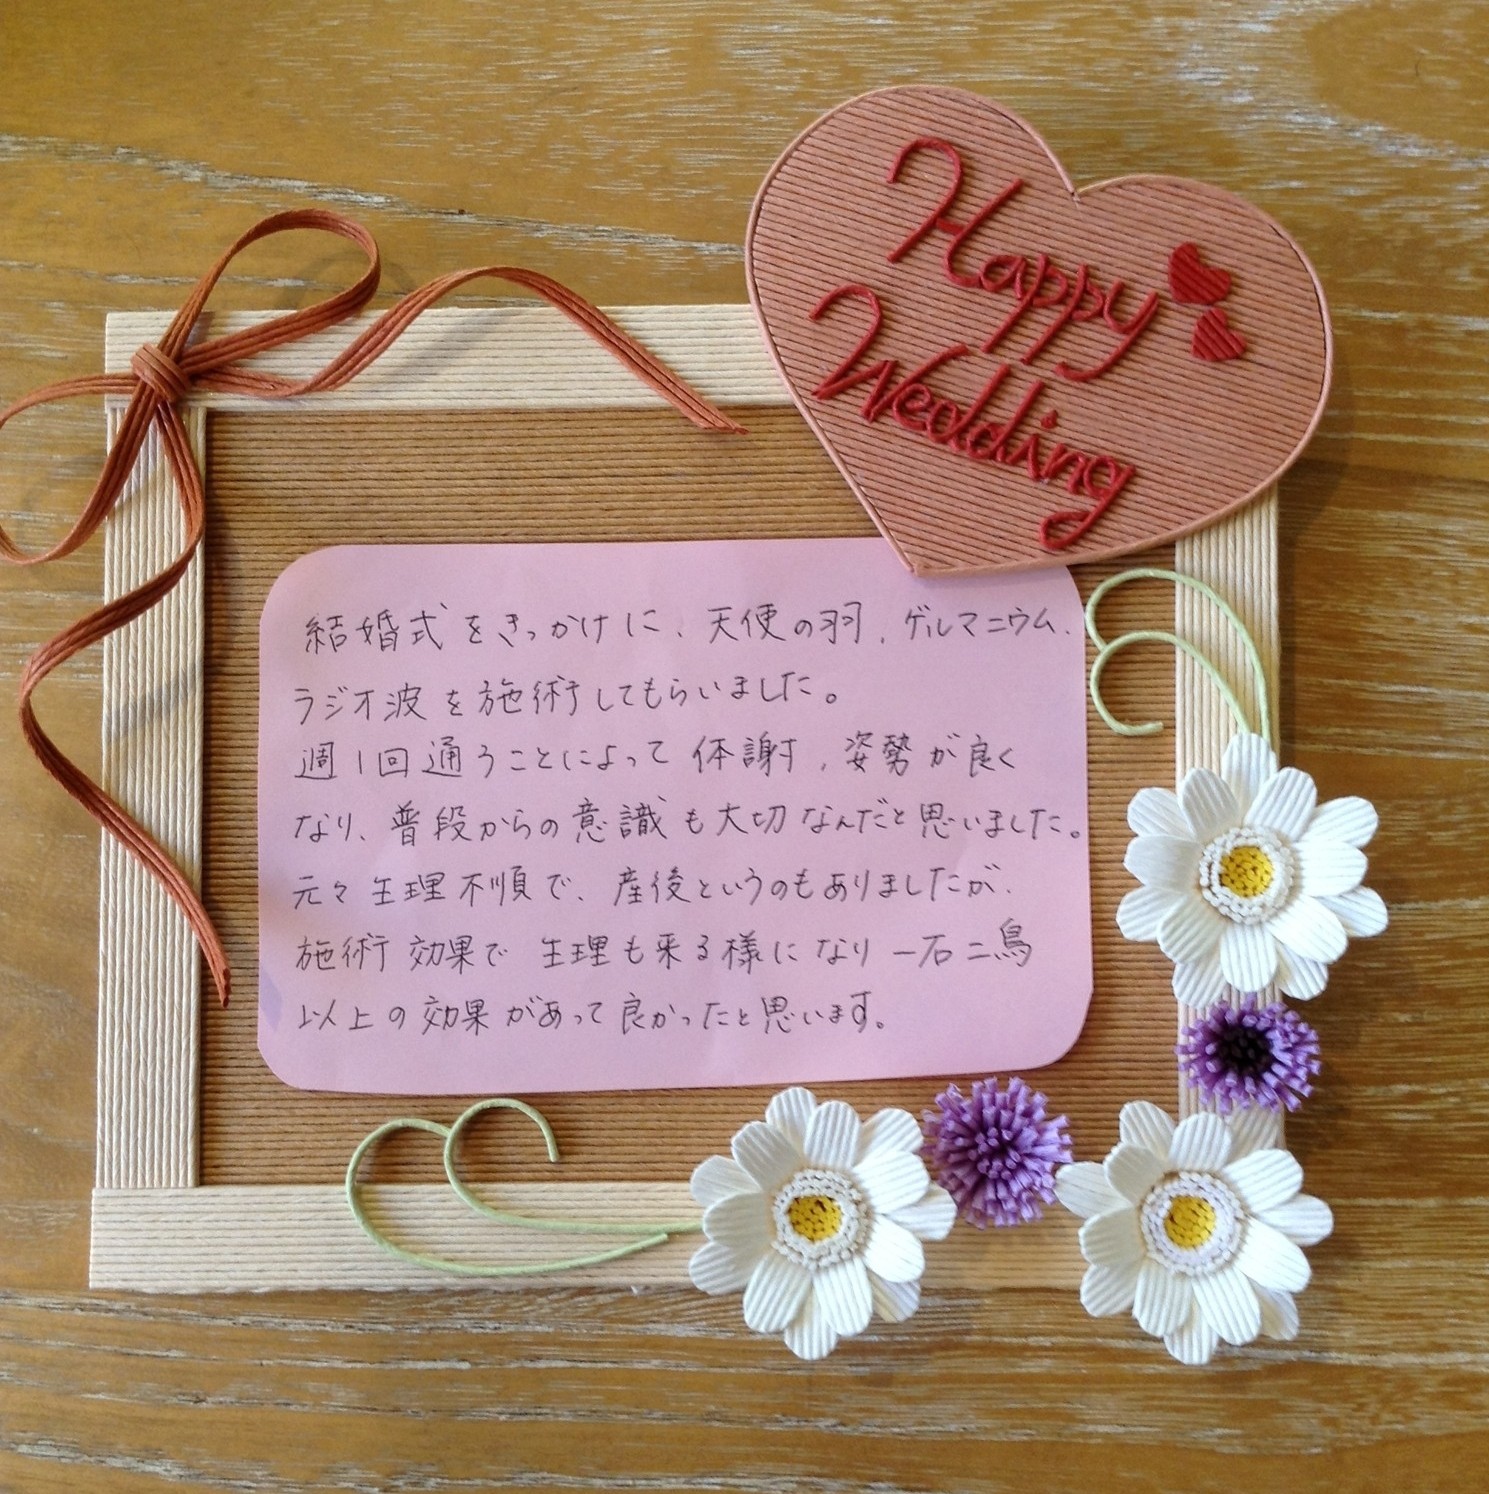 Happy
Wedding
結婚式をきっかけに、天使の羽、ゲルマニウム、
ラジオ波を施術してもらいました。
週1回通うことによって体謝、姿勢が良く
なり、普段からの意識も大切なんだと思いました。
元々生理不順で、産後というのもありましたが、
施術効果で生理も来る様になり一石二鳥
以上の効果があって良かったと思います。